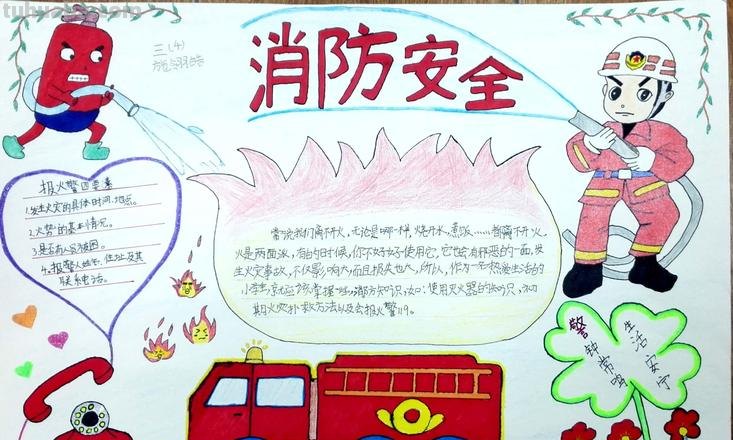 三(4)
消防安全
报火警四要素
1.发生火灾的具体时间、地点。
2.火势的基本情况。
3.是否有人员被困。
4.报警人姓名、住址及其
联系电话。
常说我们离不开火,无论是哪一样,烧开水、煮饭……都离不开火,
火是两面派,有的时候,你不好好使用它,它也会有邪恶的一面,发
生火灾事故,不仅影响大而且损失也大,所以,作为一名热爱生活的
小学生,就应该掌握一些消防知识,如:使用灭火器的知识,初
期火灾扑救方法以及会报火警119。
警钟常鸣
生活安宁